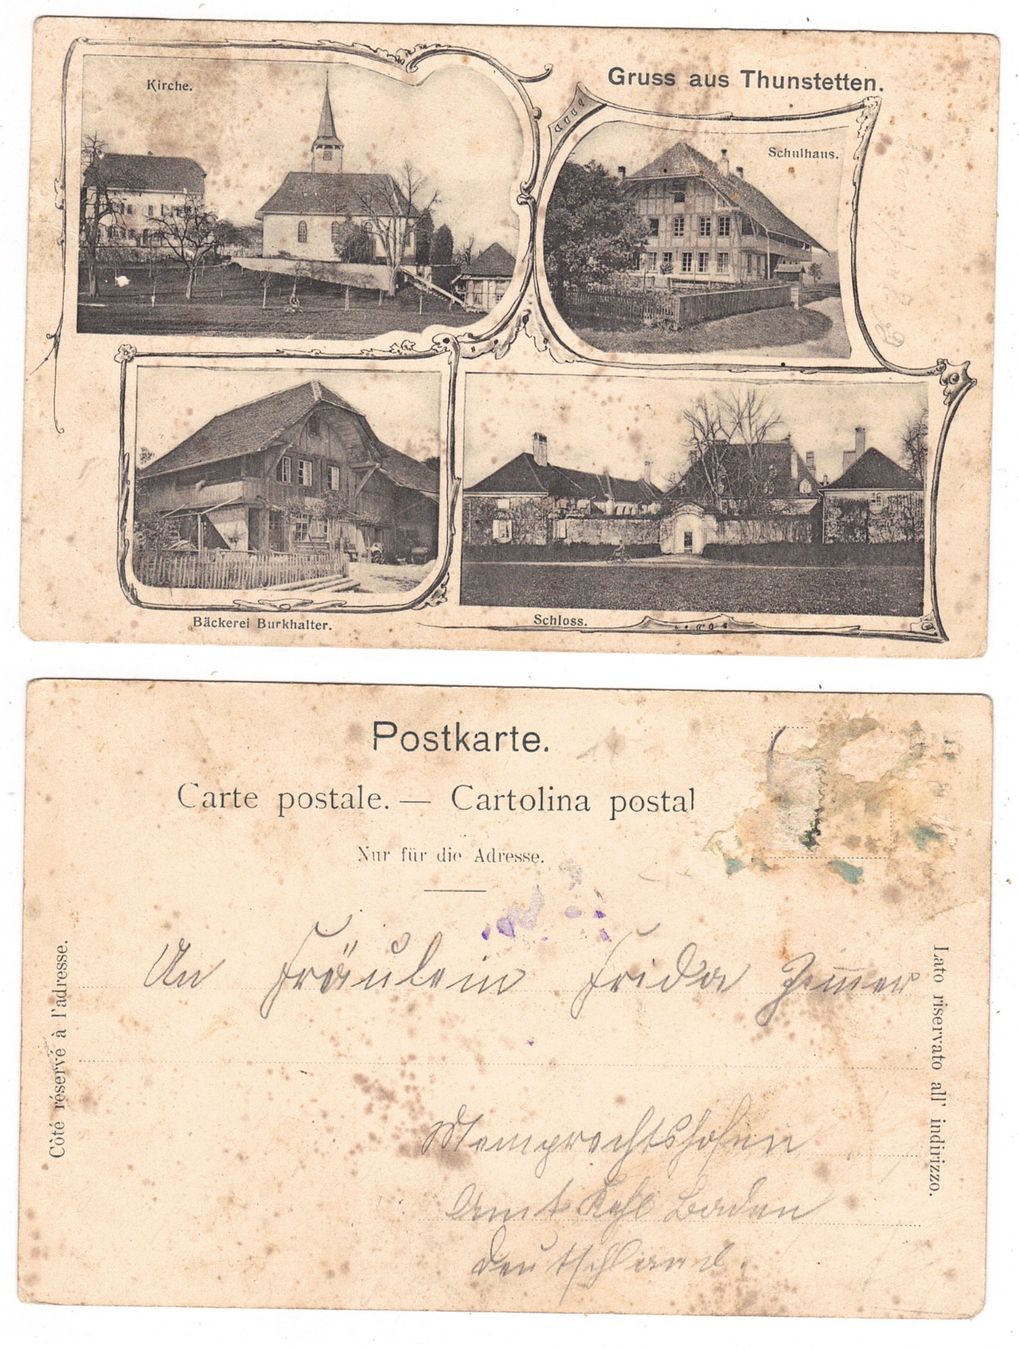 Kirche.
Gruss aus Thunstetten.
Schulhaus.
Bäckerei Burkhalter.
Schloss.
Postkarte.
Carte postale. — Cartolina postal
Nur für die Adresse.
Côté réservé à l'adresse.
Lato riservato all' indirizzo.
An Fräulein Frida Zimmer
Memprechtshofen
Amt Kehl Baden
Deutschland.